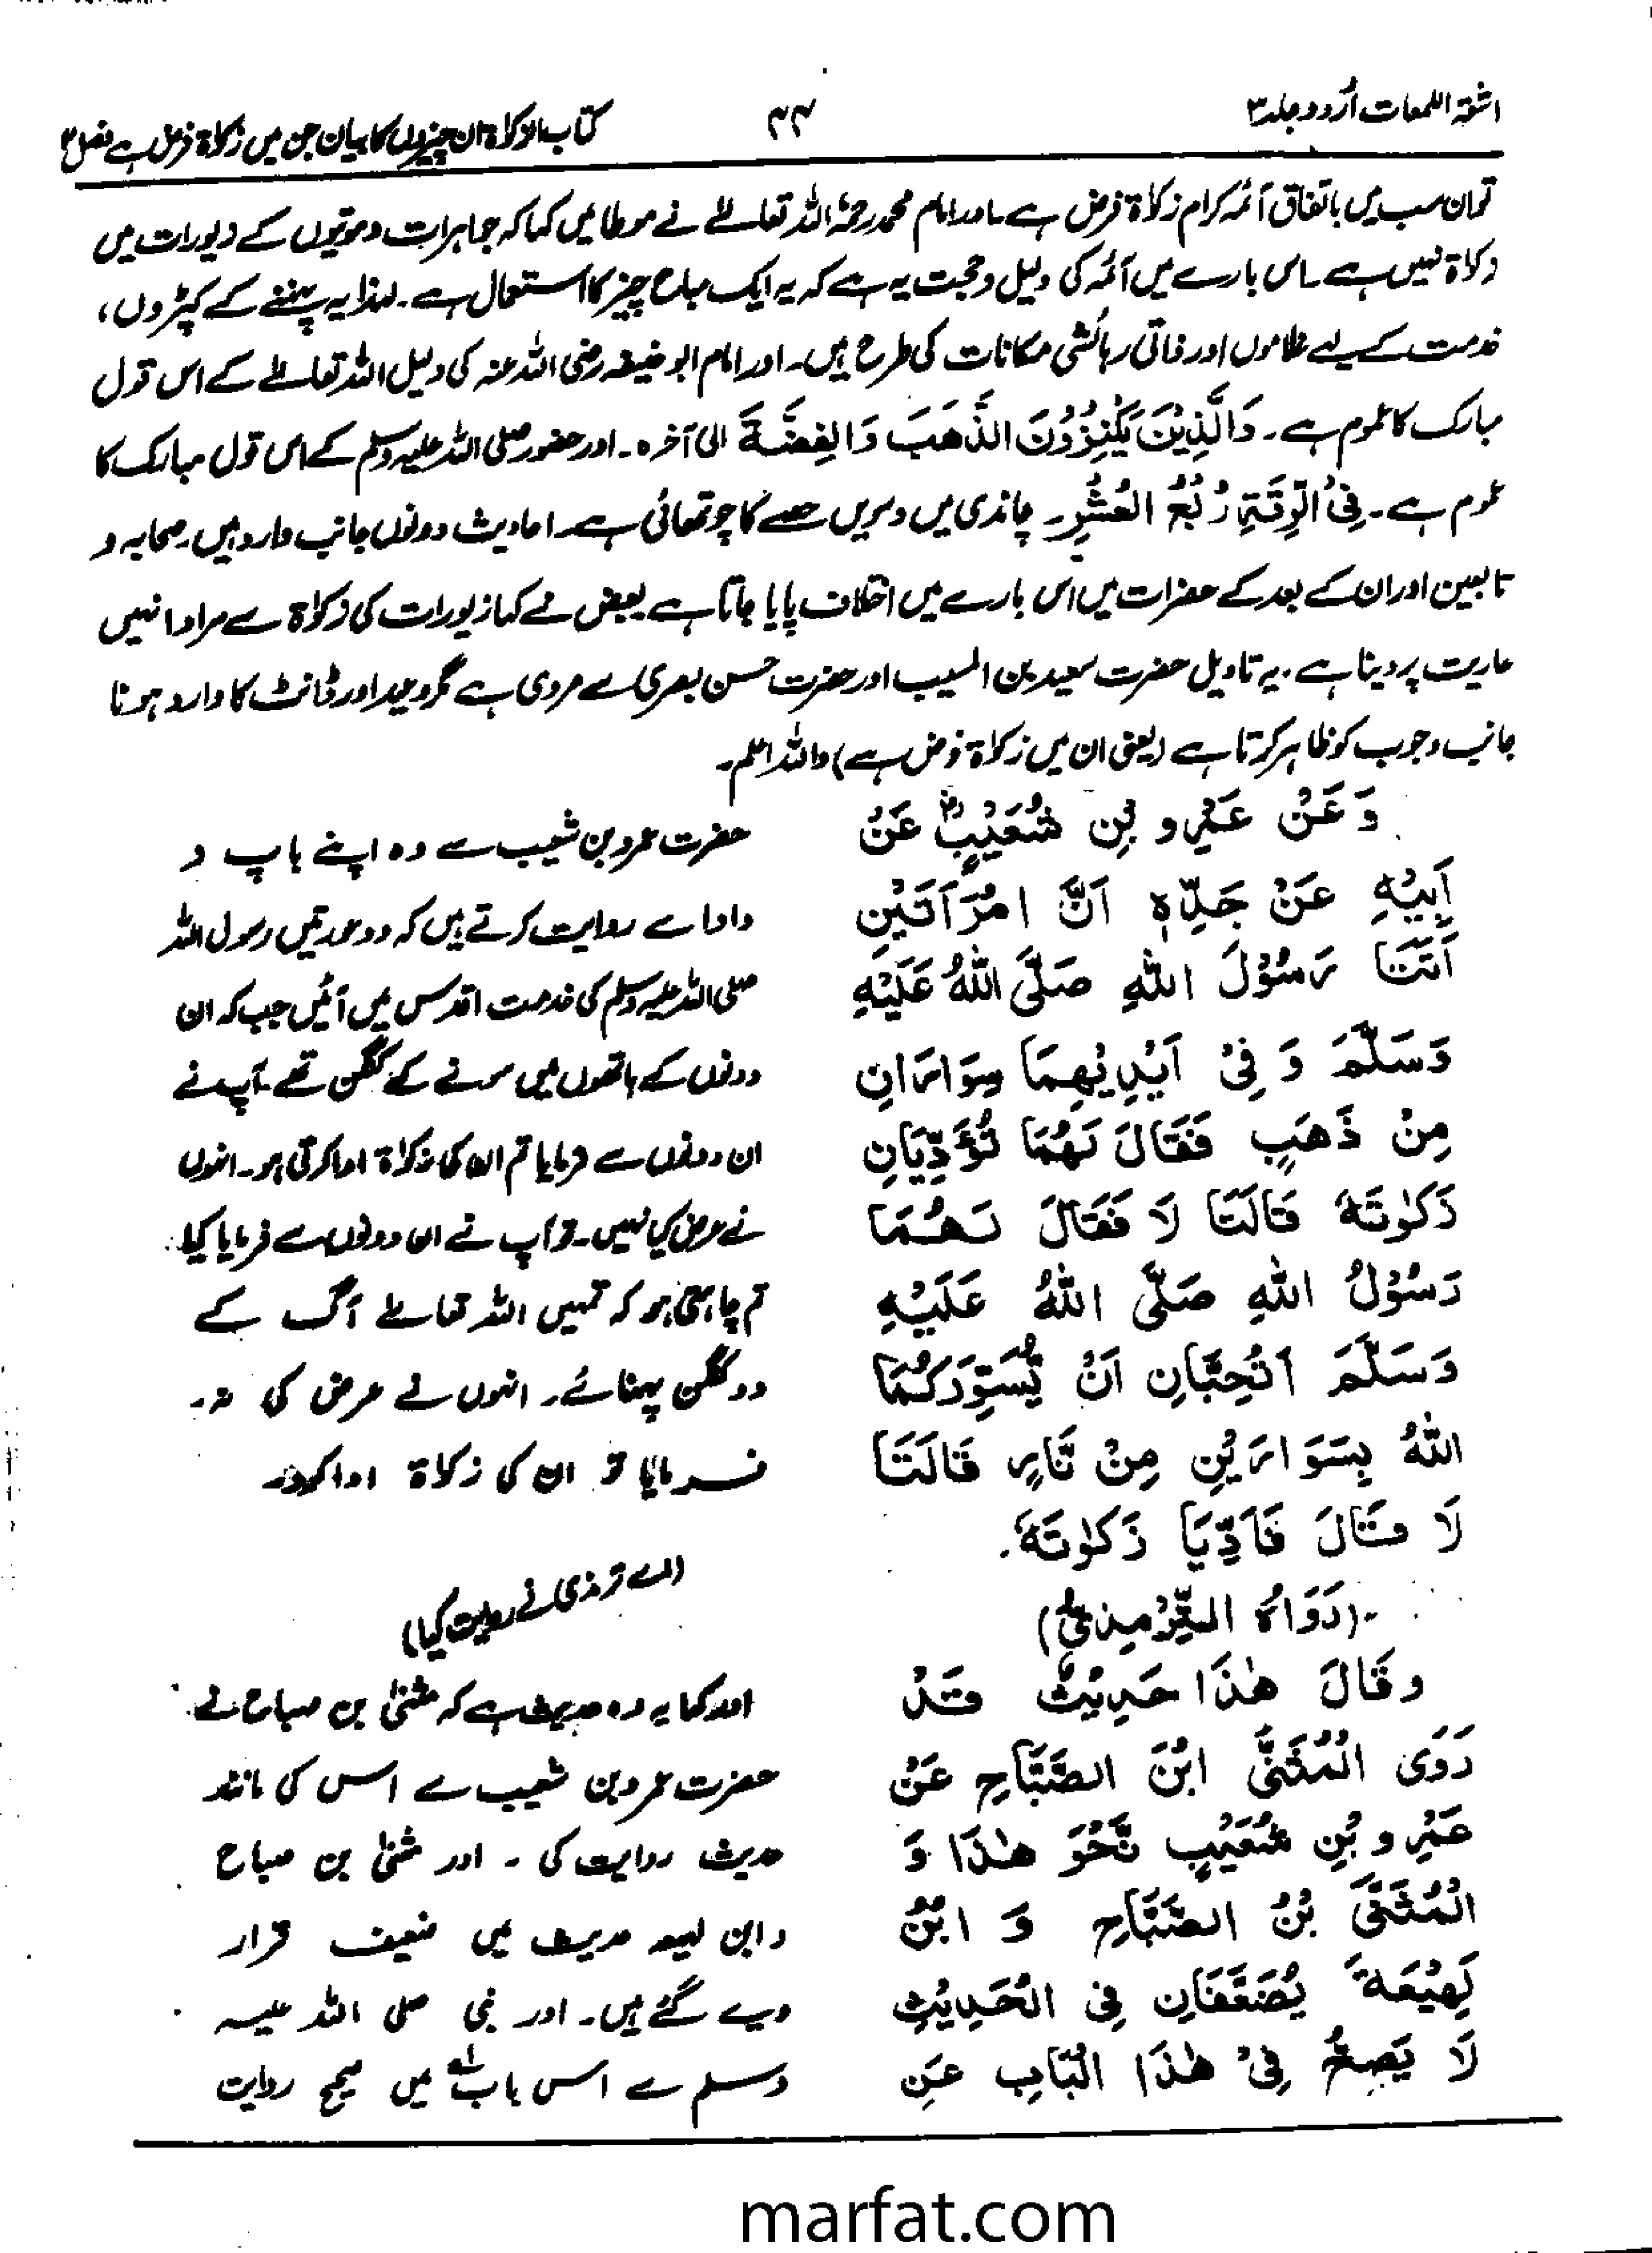 اشعۃ اللمعات اُردو جلد ۳
۴۴
کتاب الزکاۃ ان چیزوں کا بیان جن میں زکاۃ فرض ہے فصل ۲
تو ان سب میں باتفاق آئمہ کرام زکاۃ فرض ہے ۔ اور امام محمد رحمۃ اللہ تعالےٰ نے موطا میں کہا کہ جواہرات و موتیوں کے زیورات میں
زکاۃ نہیں ہے ۔ اس بارے میں آئمہ کی دلیل و حجت یہ ہے کہ یہ ایک مباح چیز کا استعمال ہے ۔ لہذا یہ پہننے کے کپڑوں،
خدمت کے لیے غلاموں اور ذاتی رہائشی مکانات کی طرح ہیں ۔ اور امام ابو حنیفہ رضی اللہ عنہ کی دلیل اللہ تعالےٰ کے اس قول
مبارک کا عموم ہے ۔ وَالَّذِیْنَ یَکْنِزُوْنَ الذَّهَبَ وَالْفِضَّةَ الیٰ آخرہ ۔ اور حضور صلی اللہ علیہ وسلم کے اس قول مبارک کا
عموم ہے ۔ فِی الرِّقَۃِ رُبْعُ الْعُشْرِ ۔ چاندی میں دسویں حصے کا چوتھائی ہے ۔ احادیث دونوں جانب وارد ہیں ۔ صحابہ و
تابعین اور ان کے بعد کے حضرات میں اس بارے میں اختلاف پایا جاتا ہے بعض نے کہا زیورات کی زکواۃ سے مراد انہیں
عاریت پر دینا ہے ۔ یہ تاویل حضرت سعید بن المسیب اور حضرت حسن بصری سے مروی ہے مگر وعید اور ڈانٹ کا وارد ہونا
جانب وجوب کو ظاہر کرتا ہے (یعنی ان میں زکواۃ فرض ہے) واللہ اعلم ۔
وَعَنْ عَمْرِو بْنِ شُعَیْبٍ عَنْ
اَبِیْهِ عَنْ جَدِّهٖ اَنَّ امْرَاَتَیْنِ
اَتَتَا رَسُوْلَ اللهِ صَلَّی اللهُ عَلَیْهِ
وَسَلَّمَ وَ فِیْ اَیْدِیْهِمَا سِوَارَانِ
مِنْ ذَهَبٍ فَقَالَ لَهُمَا تُؤَدِّیَانِ
زَکٰوتَهٗ قَالَتَا لَا فَقَالَ لَهُمَا
رَسُوْلُ اللهِ صَلَّی اللهُ عَلَیْهِ
وَسَلَّمَ اَتُحِبَّانِ اَنْ یُّسَوِّرَکُمَا
اللهُ بِسَوَارَیْنِ مِنْ نَّارٍ قَالَتَا
لَا قَالَ فَاَدِّیَا زَکٰوتَهٗ ۔
۔(رَوَاهُ التِّرْمِذِیُّ)
وقَالَ هٰذَا حَدِیْثٌ قَدْ
رَوَی الْمُثَنَّی ابْنُ الصَّبَّاحِ عَنْ
عَمْرِو بْنِ شُعَیْبٍ نَحْوَ هٰذَا وَ
الْمُثَنَّی بْنُ الصَّبَّاحِ وَ ابْنُ
لَهِیْعَةَ یُضَعَّفَانِ فِی الْحَدِیْثِ
لَا یَصِحُّ فِیْ هٰذَا الْبَابِ عَنِ
حضرت عمرو بن شعیب سے وہ اپنے باپ و
دادا سے روایت کرتے ہیں کہ دو عورتیں رسول اللہ
صلی اللہ علیہ وسلم کی خدمت اقدس میں آئیں جب کہ ان
دونوں کے ہاتھوں میں سونے کے کنگن تھے آپ نے
ان دونوں سے فرمایا تم ان کی زکواۃ ادا کرتی ہو ۔ انہوں
نے عرض کیا نہیں ۔ تو آپ نے ان دونوں سے فرمایا کیا
تم چاہتی ہو کہ تمہیں اللہ تعالےٰ آگ کے
دو کنگن پہنائے ۔ انہوں نے عرض کی نہ ۔
فرمایا تو ان کی زکاۃ ادا کرو ۔
(اسے ترمذی نے روایت کیا)
اور کہا یہ وہ حدیث ہے کہ مثنیٰ بن صباح نے
حضرت عمرو بن شعیب سے اس کی مانند
حدیث روایت کی ۔ اور مثنیٰ بن صباح
و ابن لہیعہ حدیث میں ضعیف قرار
دیے گئے ہیں ۔ اور نبی صلی اللہ علیہ
وسلم سے اس باب میں صحیح روایت
marfat.com